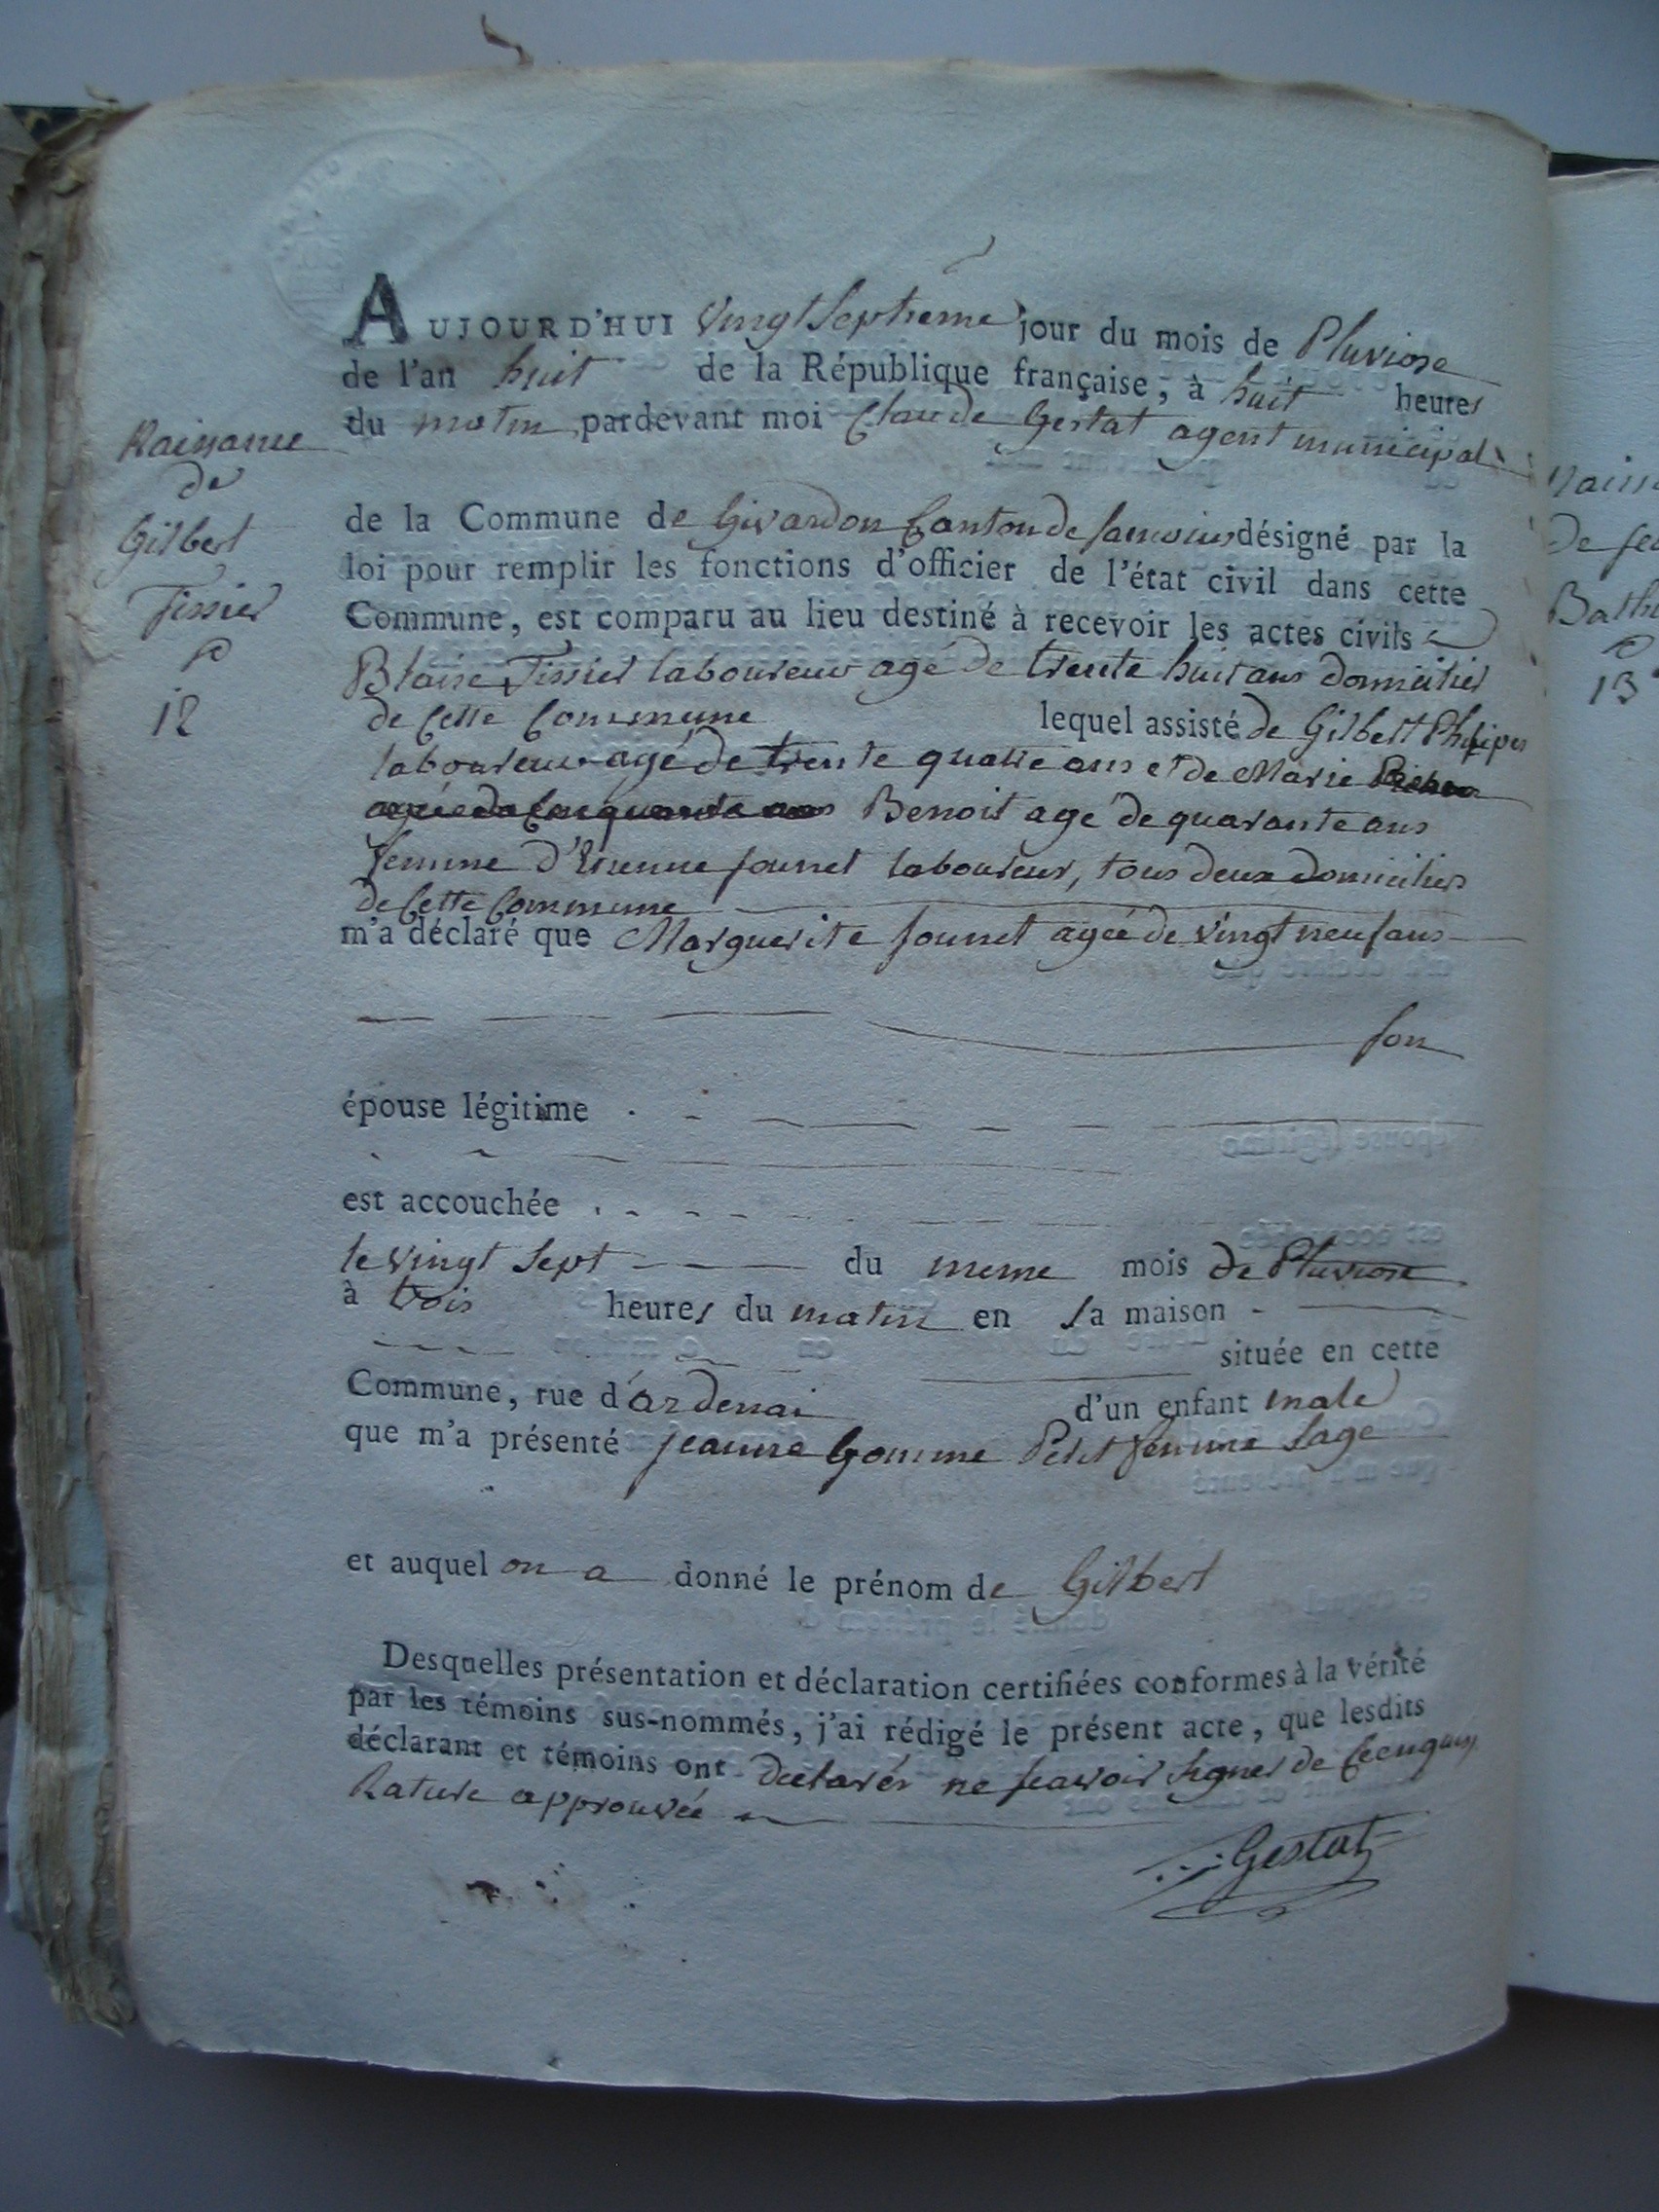 AUJOURD'HUI Vingt Septieme jour du mois de Pluviose
de l'an huit de la République française, à huit heures
du matin pardevant moi Claude Gestat agent municipal
Naissance
de
Gilbert
Tissier
12
de la Commune de Givardon Canton de désigné par la
loi pour remplir les fonctions d'officier de l'état civil dans cette
Commune, est comparu au lieu destiné à recevoir les actes civils
Blaise Tissier laboureur agé de trente huit ans domicilier
de Cette Commune lequel assisté de Gilbert
laboureur agé de trente quatre ans et de Marie
Benoit agé de quarante ans
femme d'Etienne Jounet laboureur, tous deux domiciliers
de Cette Commune
m'a déclaré que Marguerite Jounet agée de vingt neuf ans
son
épouse légitime
est accouchée
le vingt Sept du meme mois de Pluviose
à trois heures du matin en sa maison
située en cette
Commune, rue d'ardenai d'un enfant male
que m'a présenté jeanne Gomme Petit femme Sage
et auquel on a donné le prénom de Gilbert
Desquelles présentation et déclaration certifiées conformes à la vérité
par les témoins sus-nommés, j'ai rédigé le présent acte, que lesdits
déclarant et témoins ont declarér ne scavoir signer de
Rature approuvée
Gestat
Naiss
de
Bath
13